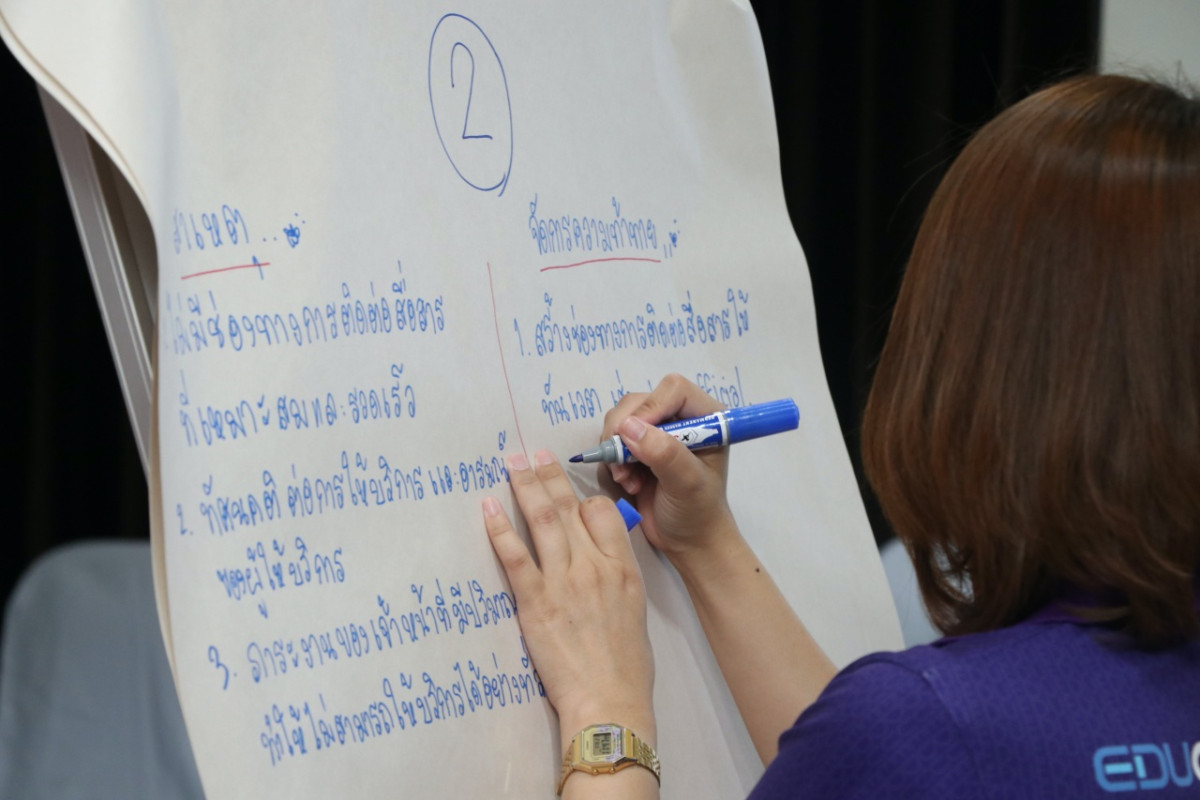 2
สาเหตุ...
ไม่มีช่องทางการติดต่อสื่อสาร
ที่เหมาะสมและรวดเร็ว
2. ทัศนคติ ต่อการให้บริการ และอารมณ์
ของผู้ให้บริการ
3. ภาระงานของเจ้าหน้าที่มีปริมาณ
ทำให้ไม่สามารถให้บริการได้อย่าง
จัดการความท้าทาย
1. สร้างช่องทางการติดต่อสื่อสารให้
ทันเวลา เช่น
PERMANENT MARKER
EDU